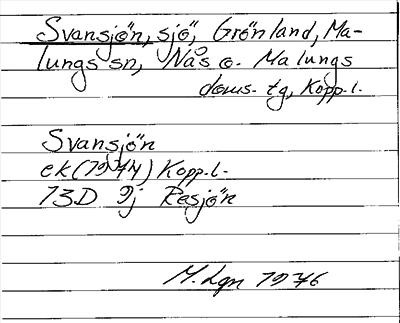 Svansjön, sjö, Grönland, Ma-
lungs sn, Nås o. Malungs
doms. tg, Kopp. l.
Svansjön
ek (1974) Kopp. l.
13D 9j Resjön
M. Lgn 1976